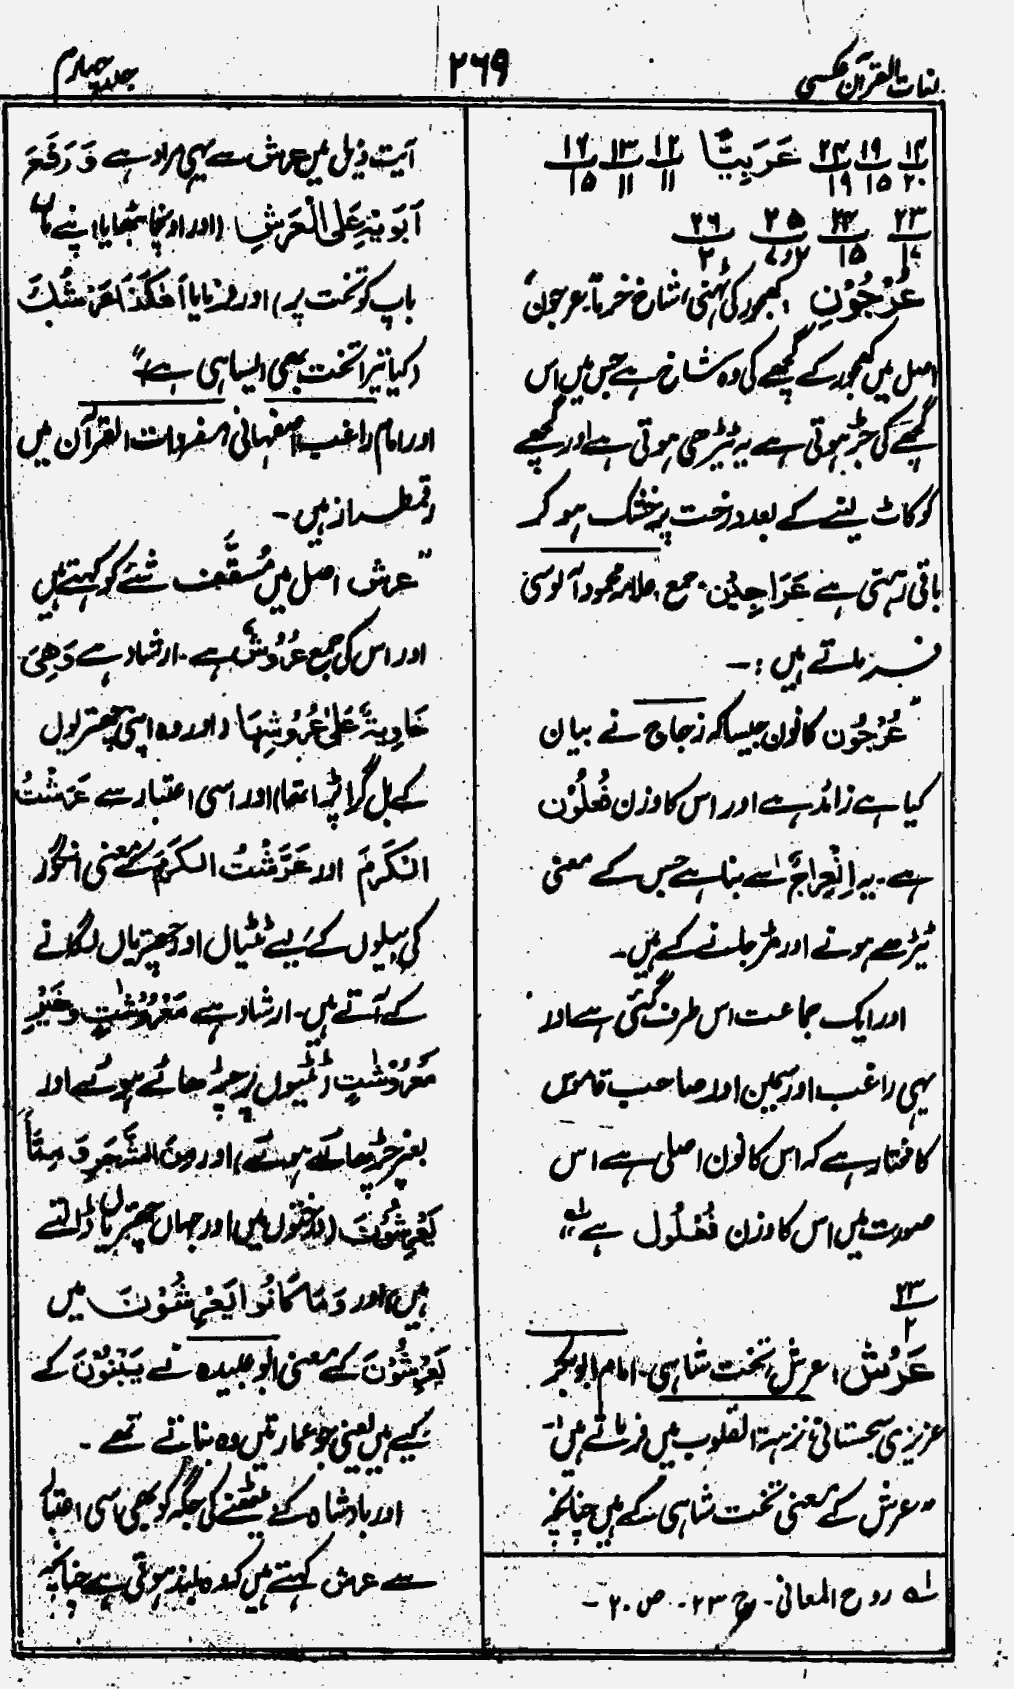 لغات القرآن عکسی
۲۶۹
جلد چہارم
۱۴/۲۰ ۱۹/۱۵ ۲۴/۱۹ عَرَبِیًّا ۱۲/۱۱ ۱۳/۱۱ ۱۶/۱۵
۲۳/۱۷ ۲۴/۱۵ ۲۵/۲و۷ ۲۶/۲
عُرْجُوْنِ ؛ کھجور کی ٹہنی، شاخ خرما، عرجون
اصل میں کھجور کے گچھے کی وہ شاخ ہے جس میں اس
گچھے کی جڑ ہوتی ہے یہ ٹیڑھی ہوتی ہے اور گچھے
کو کاٹ لینے کے بعد درخت پر خشک ہو کر
باقی رہتی ہے عَرَاجِیْن، جمع، علامہ محمود آلوسی
فرماتے ہیں :۔
"عُرْجُوْن کا نون جیسا کہ زجاج نے بیان
کیا ہے زائد ہے اور اس کا وزن فُعْلُوْن
ہے۔ یہ اِنْعِرَاج سے بنا ہے جس کے معنی
ٹیڑھے ہونے اور مڑ جانے کے ہیں۔
اور ایک جماعت اس طرف گئی ہے اور
یہی راغب اور سمین اور صاحب قاموس
کا مختار ہے کہ اس کا نون اصلی ہے اس
صورت میں اس کا وزن فُعْلُوْل ہے لہ"
۲۳/۲
عَرْش ؛ عرش، تخت شاہی۔ امام ابوبکر
عزیزی سجستانی نزہۃ القلوب میں فرماتے ہیں:۔
"عرش کے معنی تخت شاہی کے ہیں چنانچہ
لہ روح المعانی۔ ج ۲۳۔ ص ۲۰۔
آیت ذیل میں عرش سے یہی مراد ہے وَ رَفَعَ
اَبَوَیْہِ عَلَی الْعَرْشِ (اور اونچا بٹھایا اپنے ماں
باپ کو تخت پر) اور فرمایا اَھٰکَذَا عَرْشُکِ
(کیا تیرا تخت بھی ایسا ہی ہے)"
اور امام راغب اصفہانی مفردات القرآن میں
رقمطراز ہیں۔
"عرش اصل میں مُسَقَّف شئے کو کہتے ہیں
اور اس کی جمع عُرُوْش ہے۔ ارشاد ہے وَھِیَ
خَاوِیَۃٌ عَلٰی عُرُوْشِہَا (اور وہ اپنی چھتریوں
کے بل گرا پڑا تھا) اور اسی اعتبار سے عَرَشْتُ
الْکَرْمَ اور عَرَّشْتُ الْکَرْمَ کے معنی انگور
کی بیلوں کے لیے ٹٹیاں اور چھتریاں لگانے
کے آتے ہیں۔ ارشاد ہے مَعْرُوْشٰتٍ وَّغَیْرَ
مَعْرُوْشٰتٍ (ٹٹیوں پر چڑھائے ہوئے اور
بغیر چڑھائے ہوئے) اور وَمِنَ الشَّجَرِ وَمِمَّا
یَعْرِشُوْنَ (درختوں میں اور جہاں چھتریاں ڈالتے
ہیں) اور وَمَا کَانُوْا یَعْرِشُوْنَ میں
یَعْرِشُوْنَ کے معنی ابو عبیدہ نے یَبْنُوْنَ کے
کیے ہیں یعنی جو عمارتیں وہ بناتے تھے۔
اور بادشاہ کے بیٹھنے کی جگہ کو بھی اسی اعتبار
سے عرش کہتے ہیں کہ وہ بلند ہوتی ہے چنانچہ